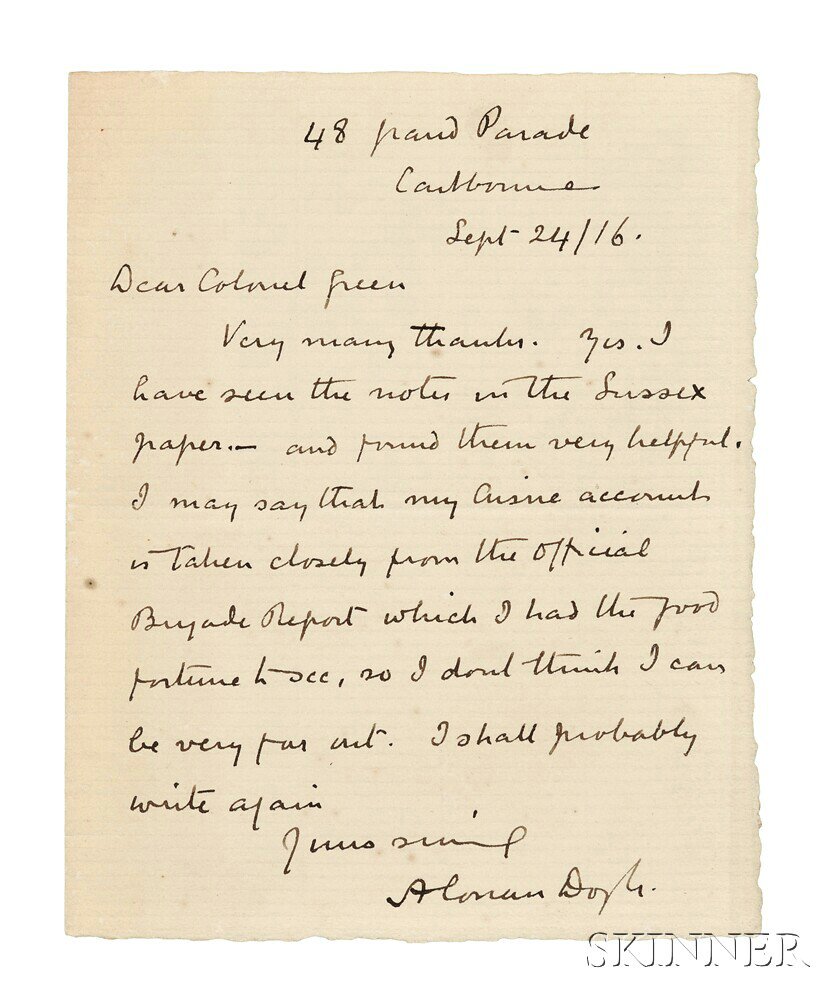 48 Grand Parade
Eastbourne
Sept 24/16.
Dear Colonel Green
Very many thanks. Yes. I
have seen the notes in the Sussex
paper.— and found them very helpful.
I may say that my Aisne account
is taken closely from the Official
Brigade Report which I had the good
fortune to see, so I dont think I can
be very far out. I shall probably
write again
Yours sincerely
A Conan Doyle.
SKINNER